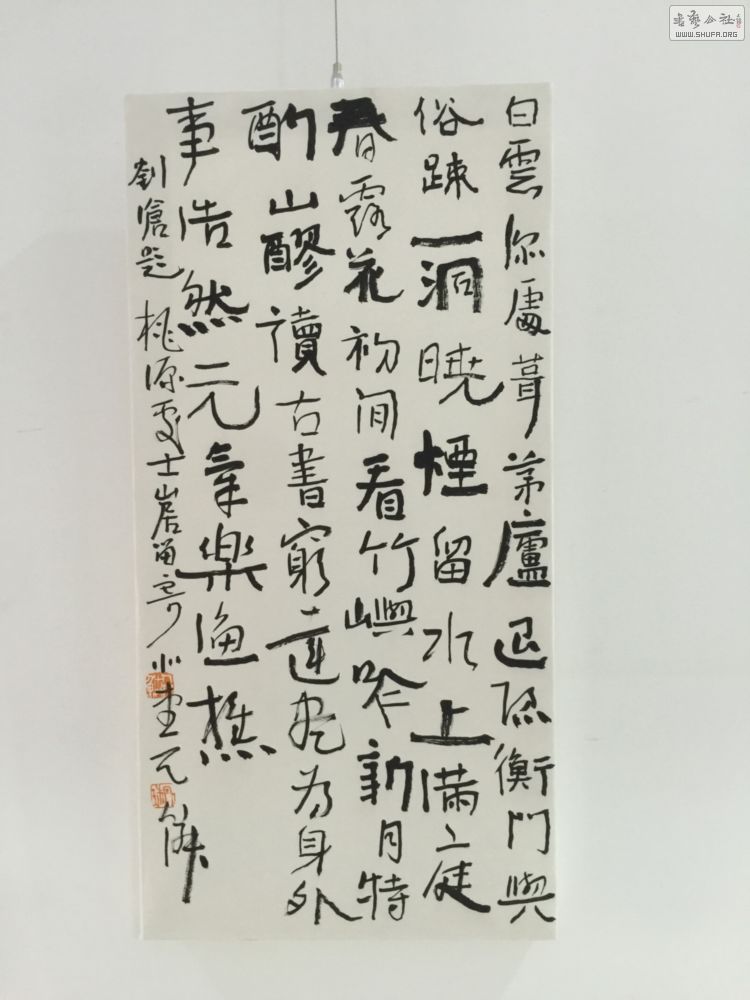 白雲深處葺茅廬退隱衡門與
俗踈一洞曉煙留水上滿庭
春露花初間看竹嶼吟新月特
酌山醪讀古書窮達盡為身外
事浩然元氣樂漁樵
劉滄題桃源處士山居留寄
書藝公社
WWW.SHUFA.ORG